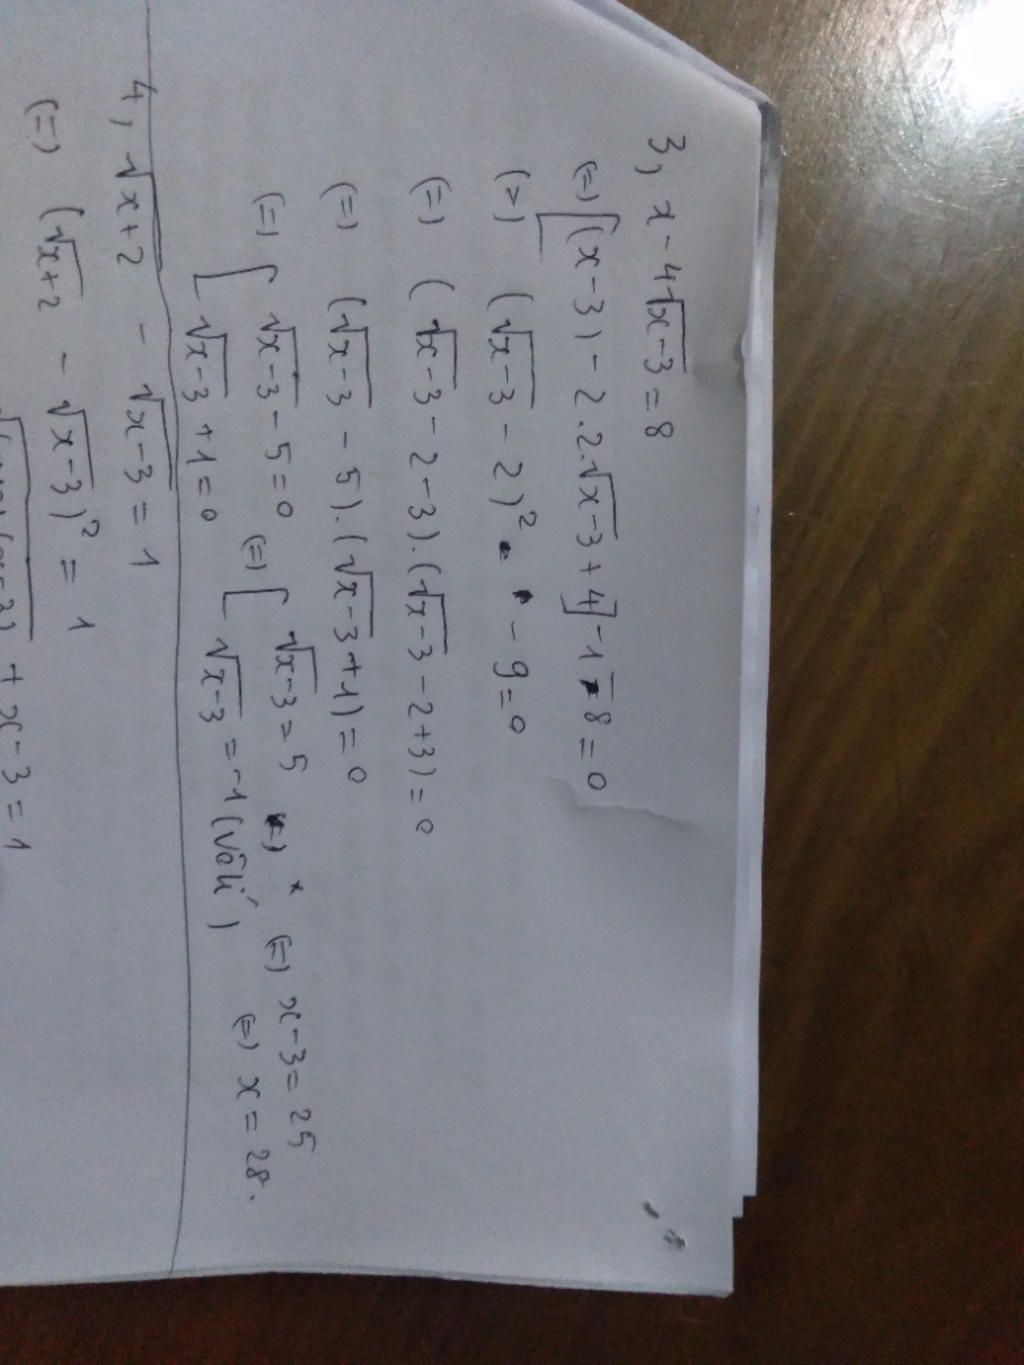 3, x - 4√x-3 = 8
(=) [(x-3) - 2.2.√x-3 + 4] - 1 - 8 = 0
(=) (√x-3 - 2)² - 9 = 0
(=) (√x-3 - 2 - 3).(√x-3 - 2 + 3) = 0
(=) (√x-3 - 5).(√x-3 + 1) = 0
(=) [ √x-3 - 5 = 0 (=) [ √x-3 = 5 (=) x - 3 = 25
√x-3 + 1 = 0 √x-3 = -1 (vôlí) (=) x = 28.
4, √x+2 - √x-3 = 1
(=) (√x+2 - √x-3)² = 1
+ x - 3 = 1